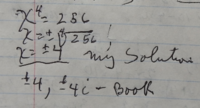 x⁴ = 256
x = ±∜256
x = ±4
my solution
±4, ±4i - Book